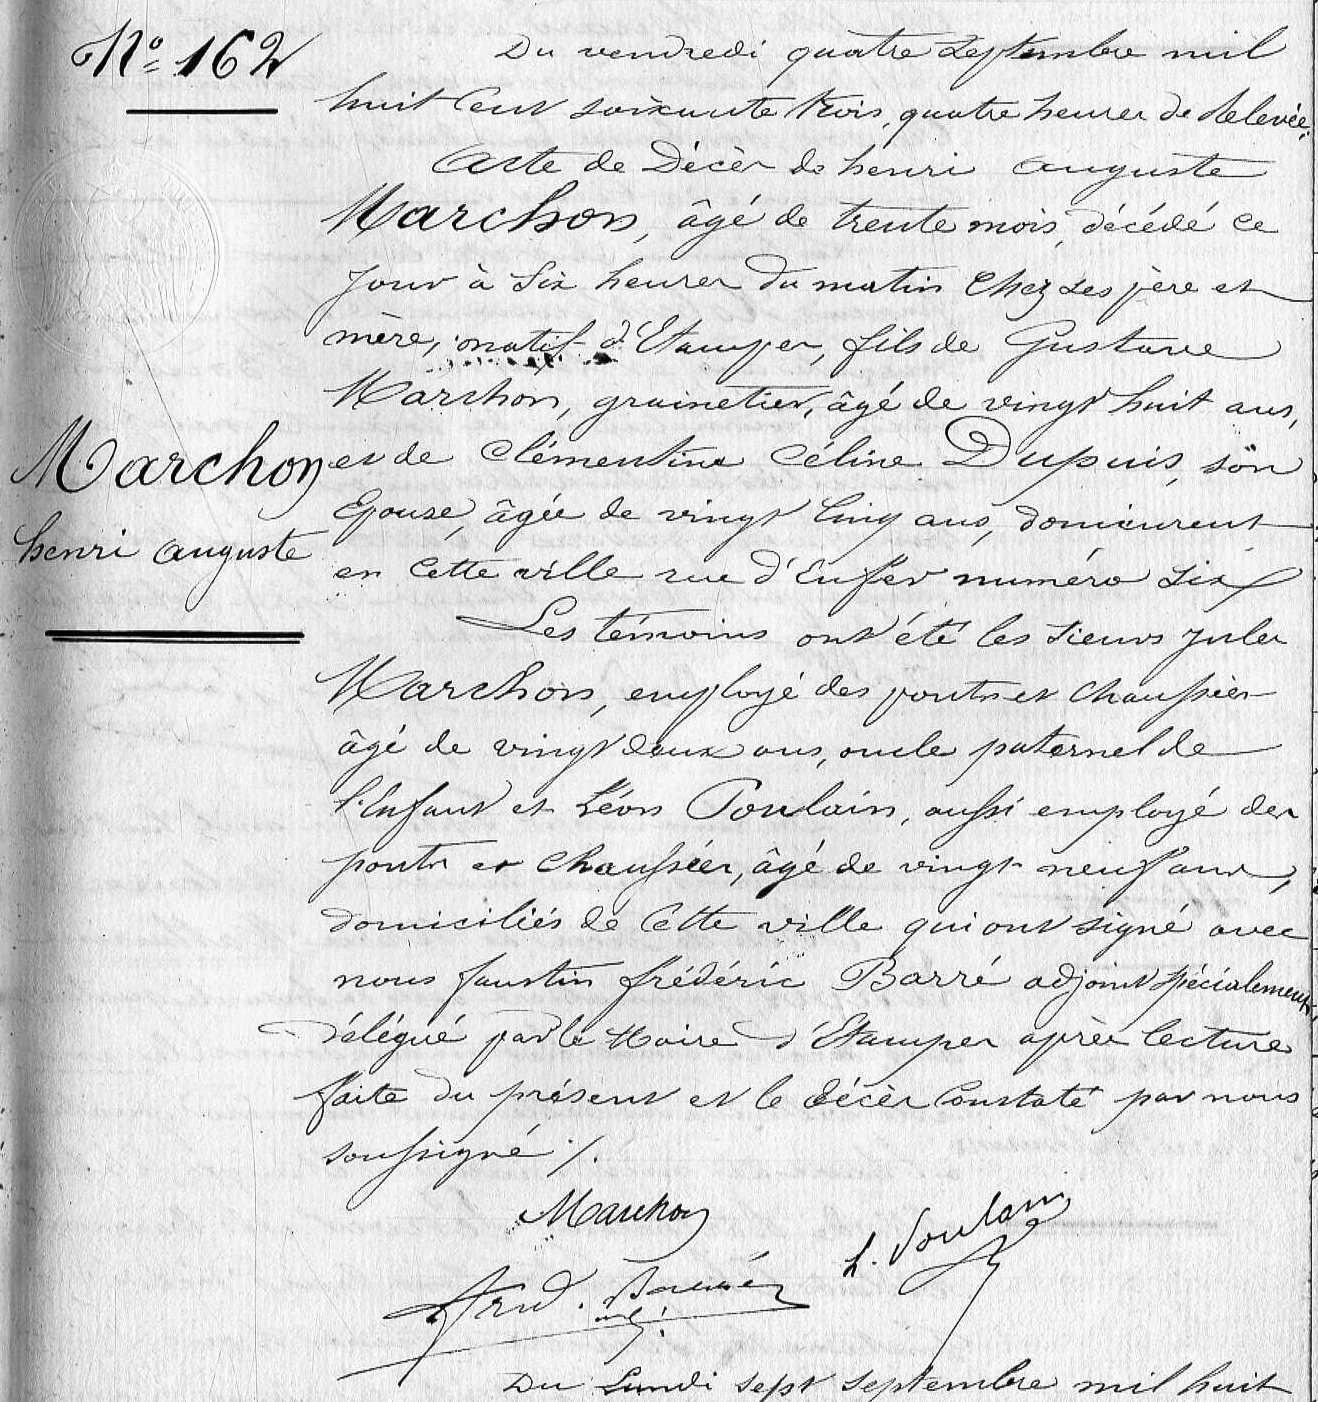 No. 162
Du vendredi quatre Septembre mil
huit Cent soixante trois, quatre heures de relevée.
Acte de Décès de henri auguste
Marchon, âgé de trente mois, décédé ce
jour à Six heures du matin Chez ses père et
mère, natif d'Etampes, fils de Gustave
Marchon, grainetier, âgé de vingt huit ans,
Marchon
et de Clémentine Céline Dupuis, son
Epouse, âgée de vingt Cinq ans, demeurent
henri auguste
en Cette ville rue d'Enfer numéro Six
Les témoins ont été les Sieurs Jules
Marchon, employé des ponts et Chaussées
âgé de vingt deux ans, oncle paternel de
l'Enfant et Léon Poulain, aussi employé des
ponts et Chaussées, âgé de vingt neuf ans,
domiciliés de Cette ville qui ont signé avec
nous faustin frédéric Barré adjoint Spécialement
délégué par le Maire d'Etampes après lecture
faite du présent et le décès Constaté par nous
soussigné ./.
Marchon
L. Poulain
Fred. Barré
adj.
Du Lundi sept septembre mil huit